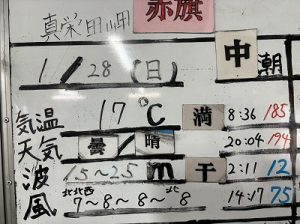 真栄田岬 赤旗
1/28(日) 中潮
気温 17℃ 満 8:36 185
天気 曇/晴 20:04 194
波 1.5~2.5m 干 2:11 12
風 北北西 7~8~8~北8 14:17 75